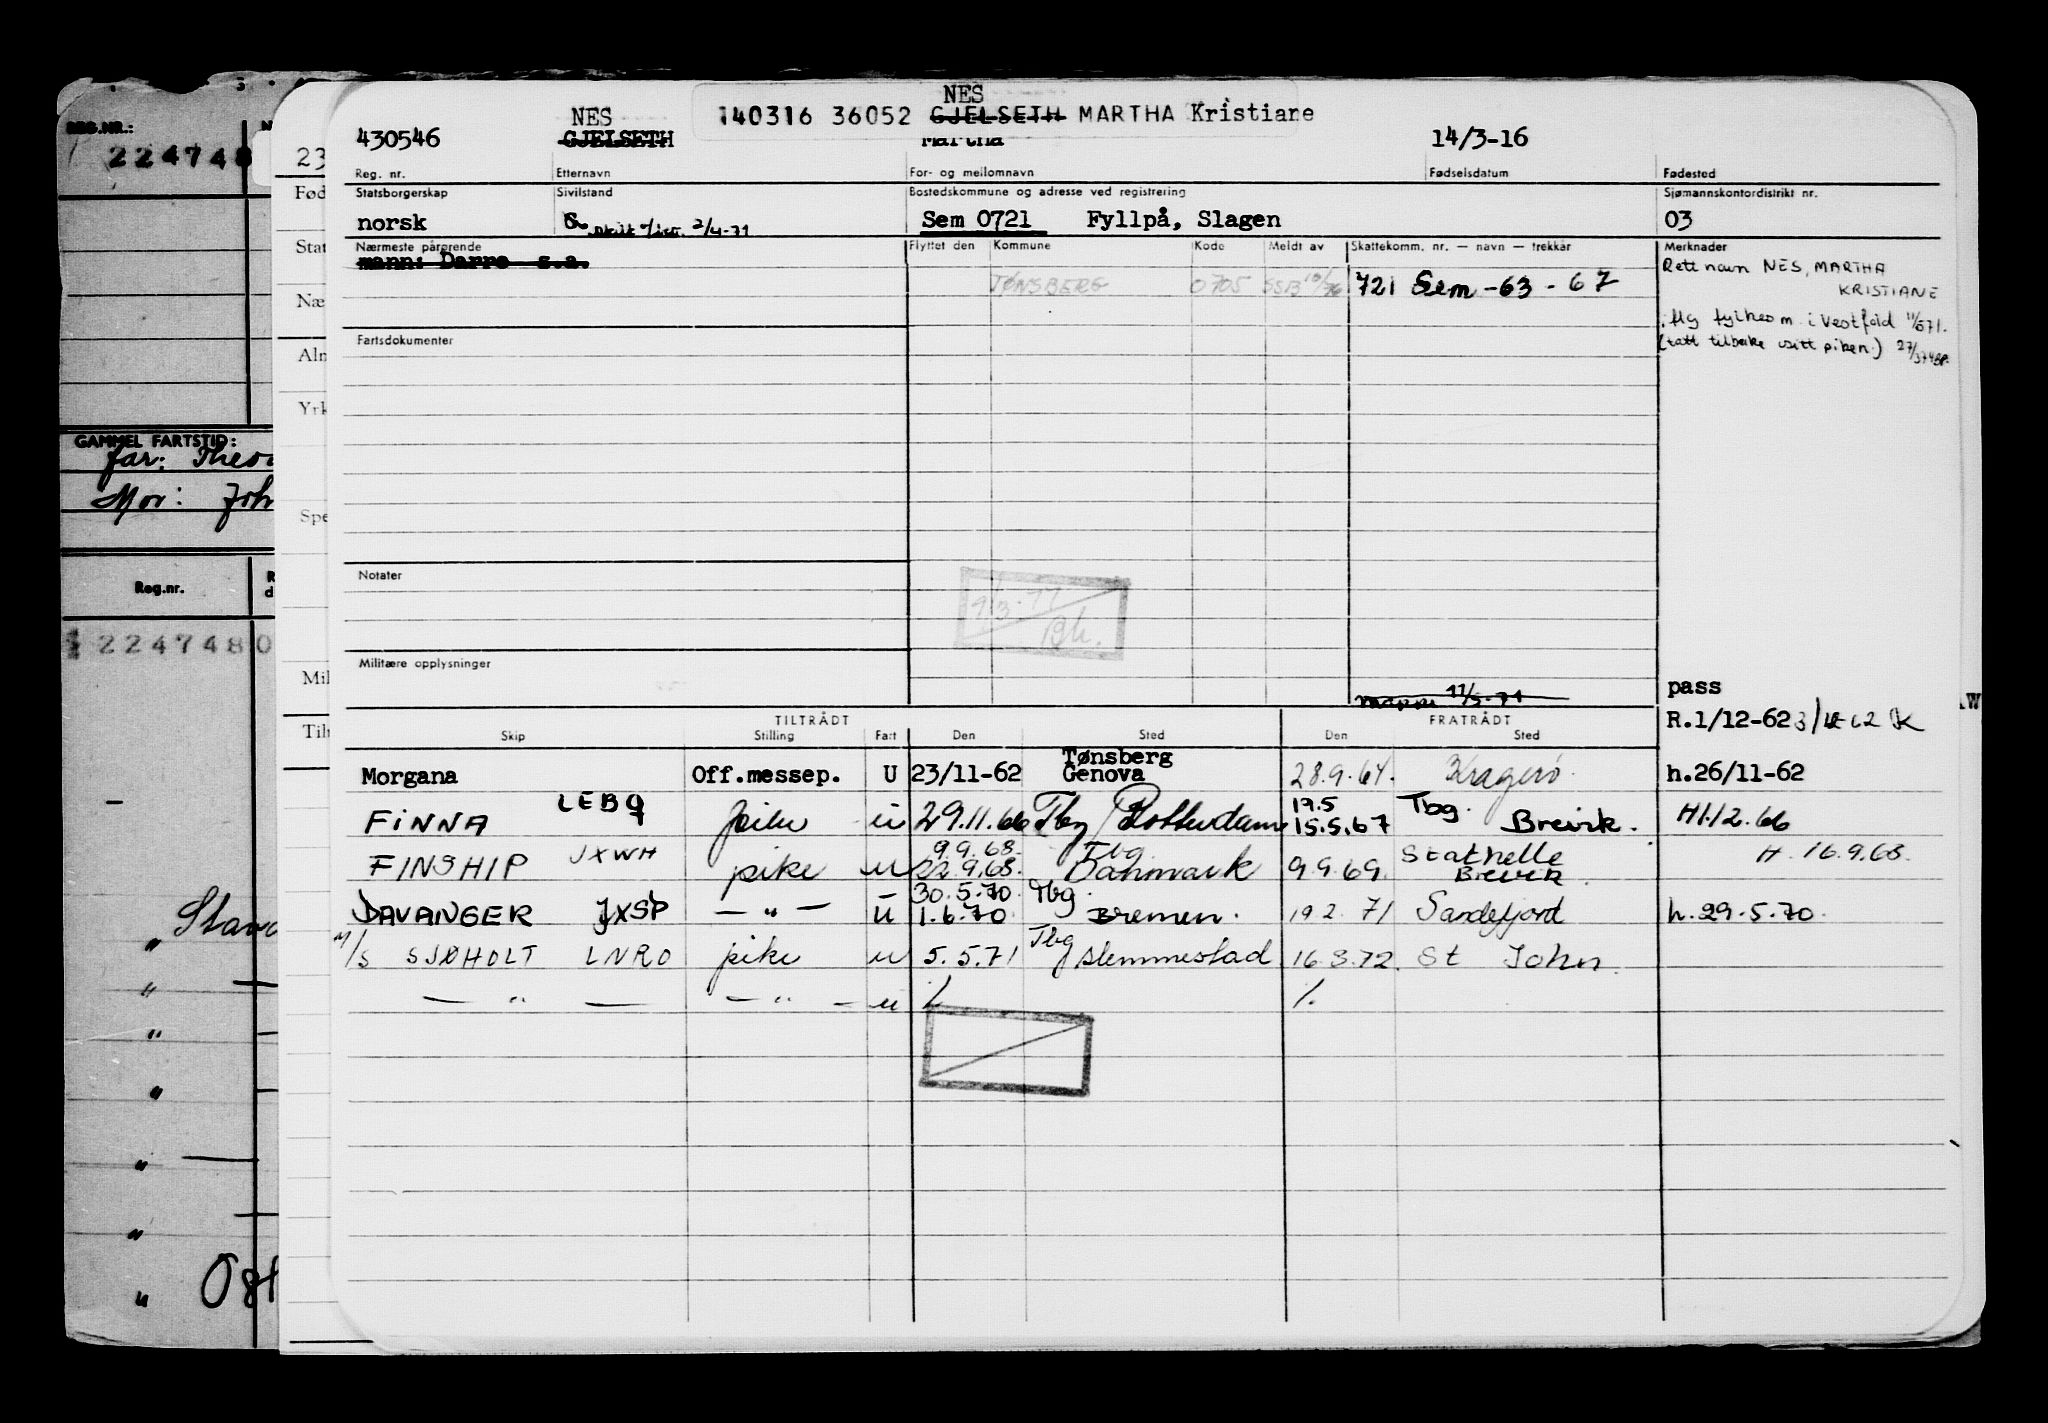 NES
140316 36052 GJELSETH MARTHA Kristiane
430546 NES GJELSETH Martha 14/3-16
Reg. nr. Etternavn For- og mellomnavn Fødselsdatum Fødested
Statsborgerskap Sivilstand Bostedskommune og adresse ved registrering Sjømannskontordistrikt nr.
norsk G. skilt 2/4-71 Sem 0721 Fyllpå, Slagen 03
Nærmeste pårørende Flyttet den Kommune Kode Meldt av Skattekomm. nr. — navn — trekkår Merknader
mann: Darre s.a.
TØNSBERG 0705 SSB 10/76 721 Sem -63 - 67
Rett navn NES, MARTHA
KRISTIANE
i Vestfold 11/571.
(tatt tilbake piken.) 27/374
Fartsdokumenter
Notater
1/3-77
Bh.
Militære opplysninger
mappe 11/5-71
pass
R.1/12-62
TILTRÅDT FRATRÅDT
Skip Stilling Fart Den Sted Den Sted
Morgana Off.messep. U 23/11-62 Tønsberg Genova 28.9.64. Kragerø h.26/11-62
FINNA LEBQ pike u 29.11.66 Tbg Rotterdam 17.5 15.5.67 Tbg. Brevik. H1.12.66
FINSHIP JXWH pike u 9.9.68. 22.9.68. Tbg Danmark 9.9.69. Stathelle Brevik. H. 16.9.68.
DAVANGER JXSP — " — u 30.5.70. 1.6.70 Tbg Bremen. 19.2.71 Sandefjord h.29.5.70.
M/S SJØHOLT LNRO pike u 5.5.71 Tbg Slemmestad 16.3.72. St John.
— " — — " — u /. /.
REG.NR.:
224748
GAMMEL FARTSTID:
far:
Mor:
Reg.nr.
2247480